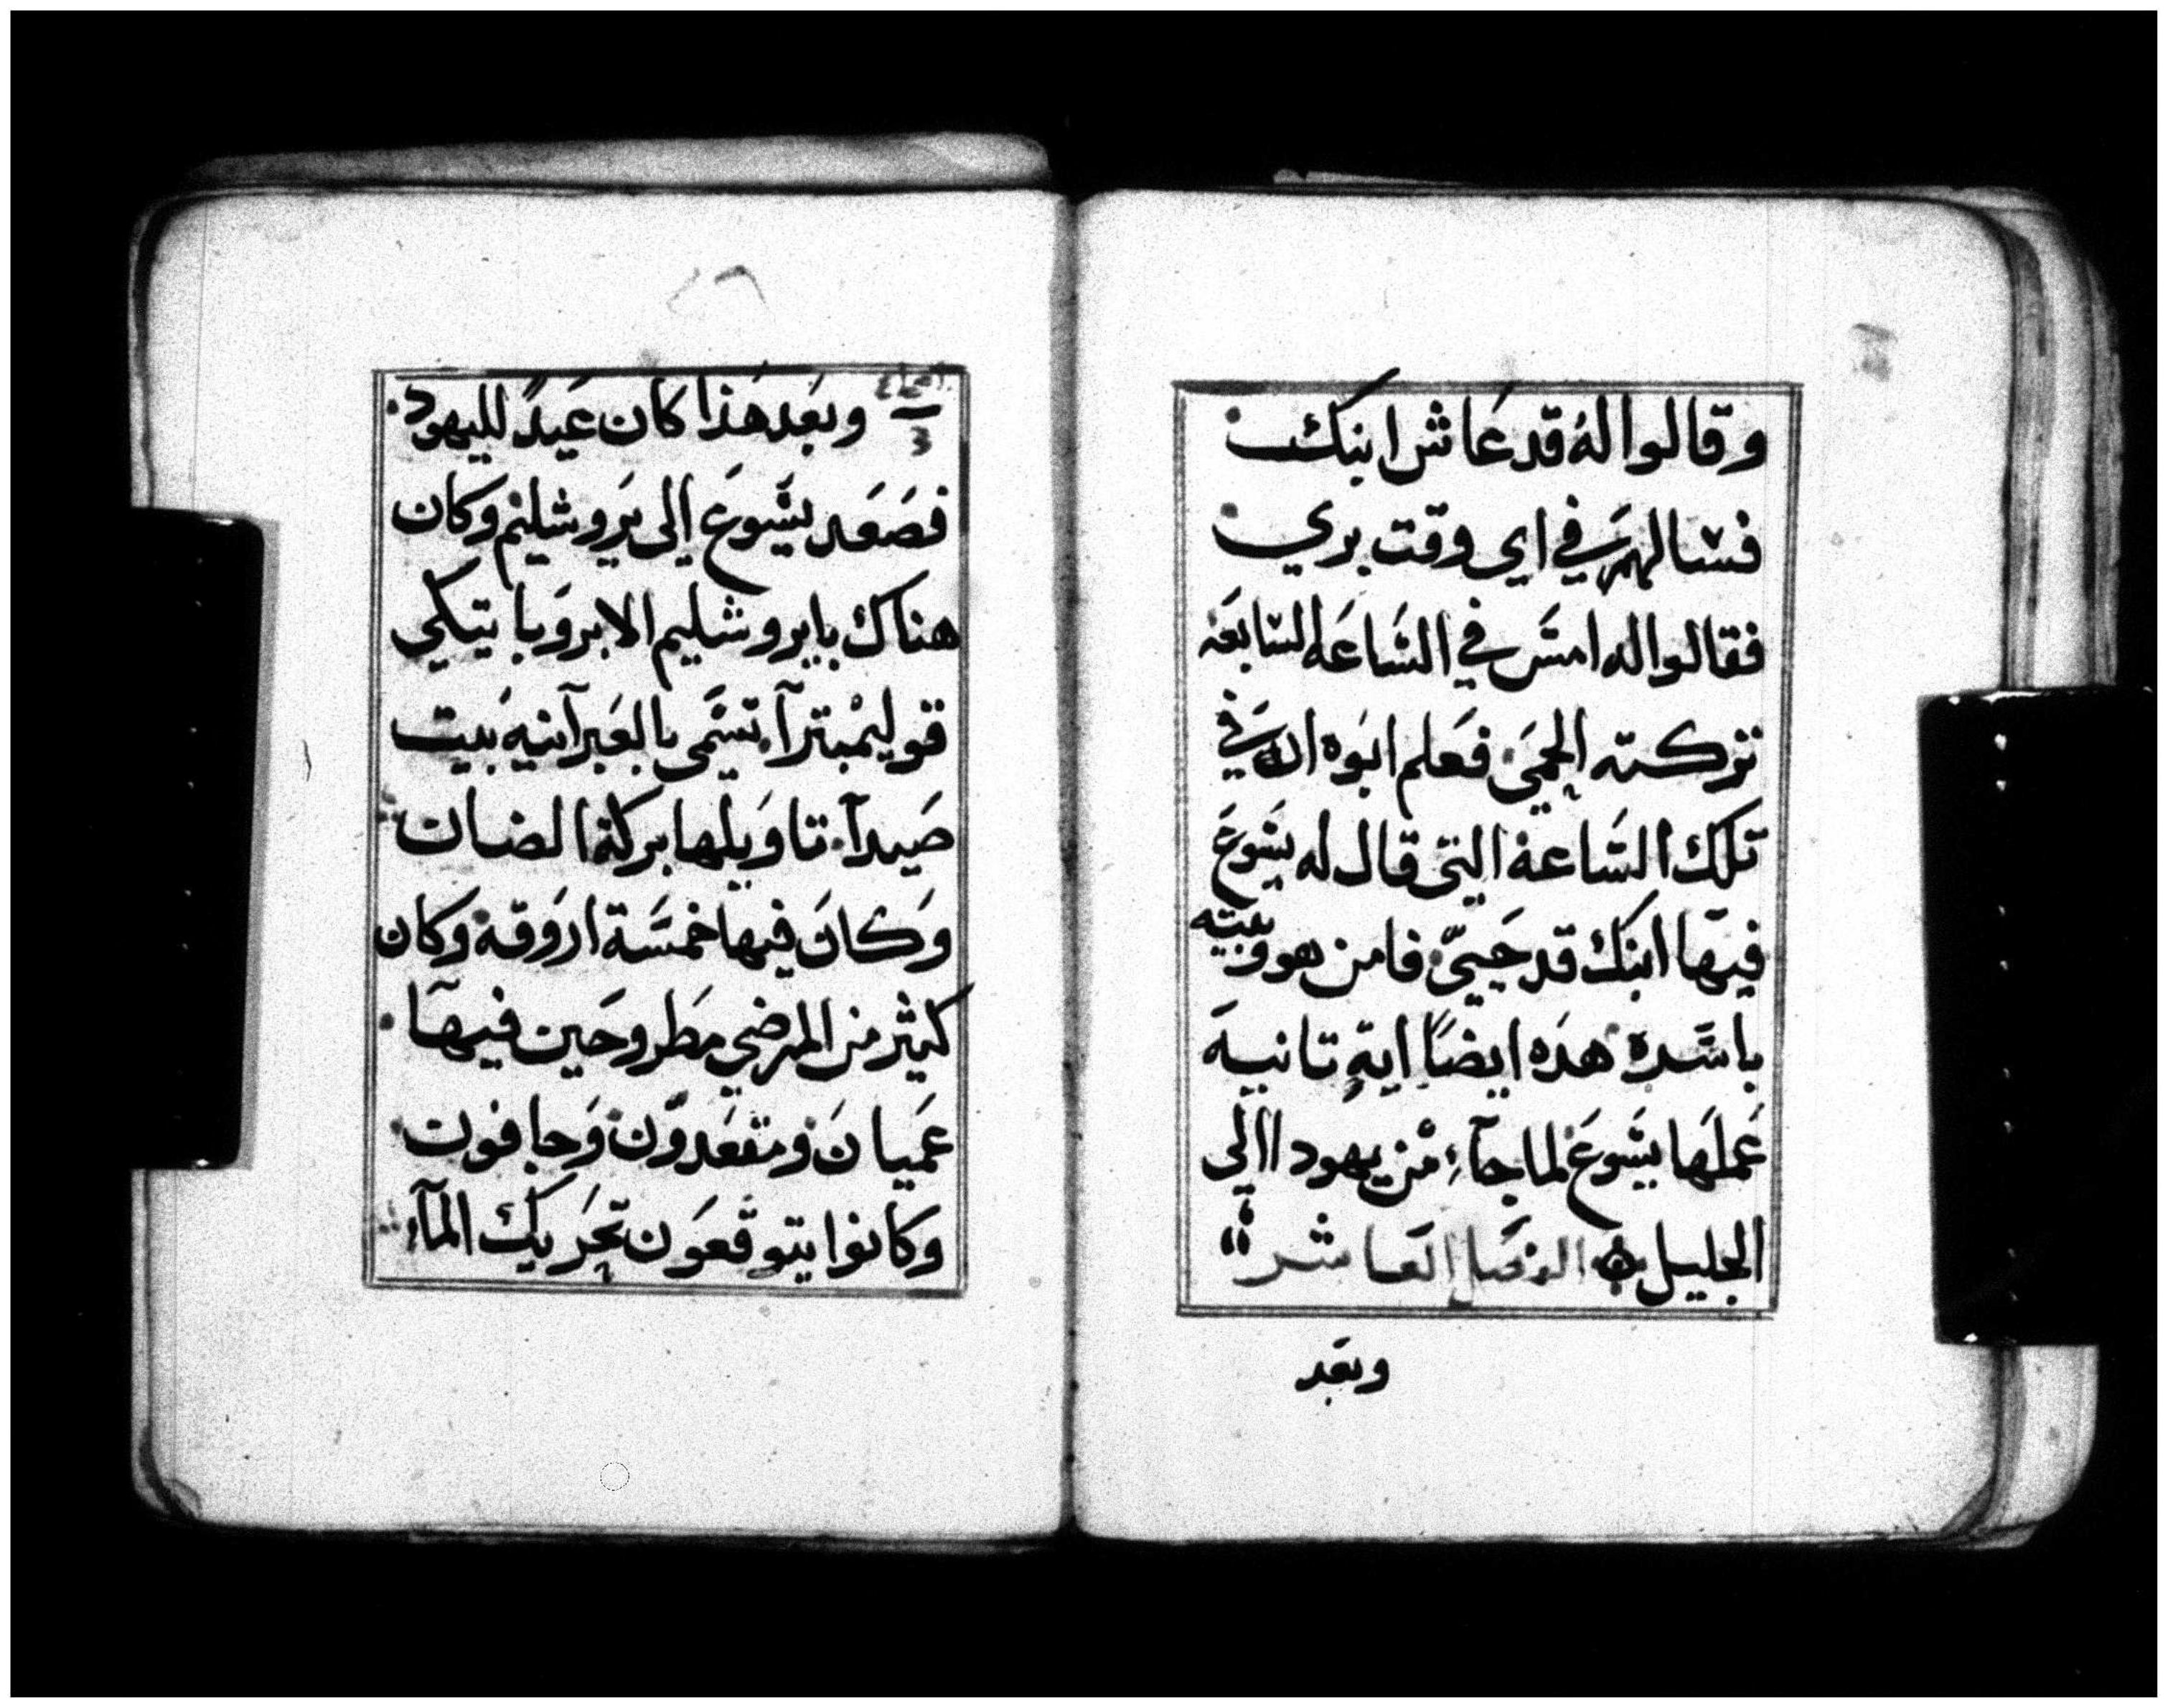 وقالوا لهُ قد عَاش ابنك
فسالهم في اي وقت بري
فقالوا له امسَ في السَّاعَه السَابعَه
تركته الحمىَ فعَلم ابوَه ان في
تلك السَّاعة التى قال له يسَوعَ
فيهَا ابنك قد حَيىّ فامن هو وبيته
باسَّره هدَه ايضَاً ايةٍ تانيهَ
عَملهَا يسَوعَ لما جآءِ مْن يهودا الى
الجليل الفصَل العَاشر
وبعَد
وبعَد هَذا كان عَيدً لليهود
فصَعَد يسَّوعَ الى يَروشليْم وكان
هناك بايروشليم الابروَباتيكي
قوليمْبترآ تسَّمى بالعَبرآنيه بَيت
صَيدآ تاوَيلها بركة الضان
وَكانَ فيها خمسَّة اروَقه وكان
كثير من المرضى مطَروحَين فيهآ
عَميانَ ومقعَدوَّن وَجافون
وكانوا يتوقعَون تحَريك المآء